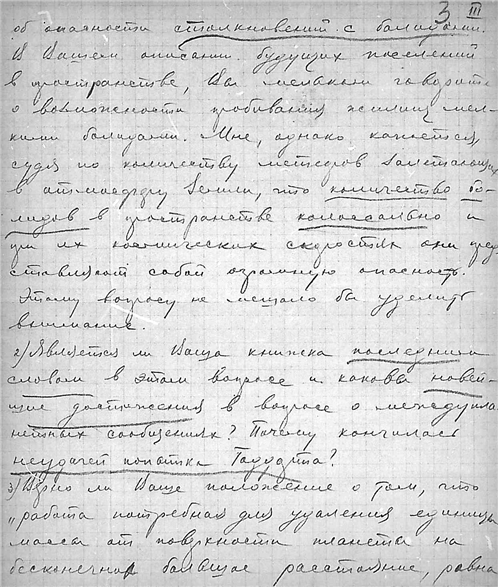 3 III
об опасности столкновений с болидами.
В Вашем описании будущих поселений
в пространстве, Вы мельком говорите
о возможности пробивания жилищ мел-
кими болидами. Мне, однако кажется,
судя по количеству метеоров залетающих
в атмосферу Земли, что количество бо-
лидов в пространстве колоссально и
при их космических скоростях они пред
ставляют собой огромную опасность.
Этому вопросу не мешало бы уделить
внимание.
2) Является ли Ваша книжка последним
словом в этом вопросе и каковы новей-
шие достижения в вопросе о междупла
нетных сообщениях? Почему кончилась
неудачей попытка Годдарта?
3) Верно ли Ваше положение о том, что
„работа потребная для удаления единицы
массы от поверхности планеты на
бесконечно большое расстояние, равна